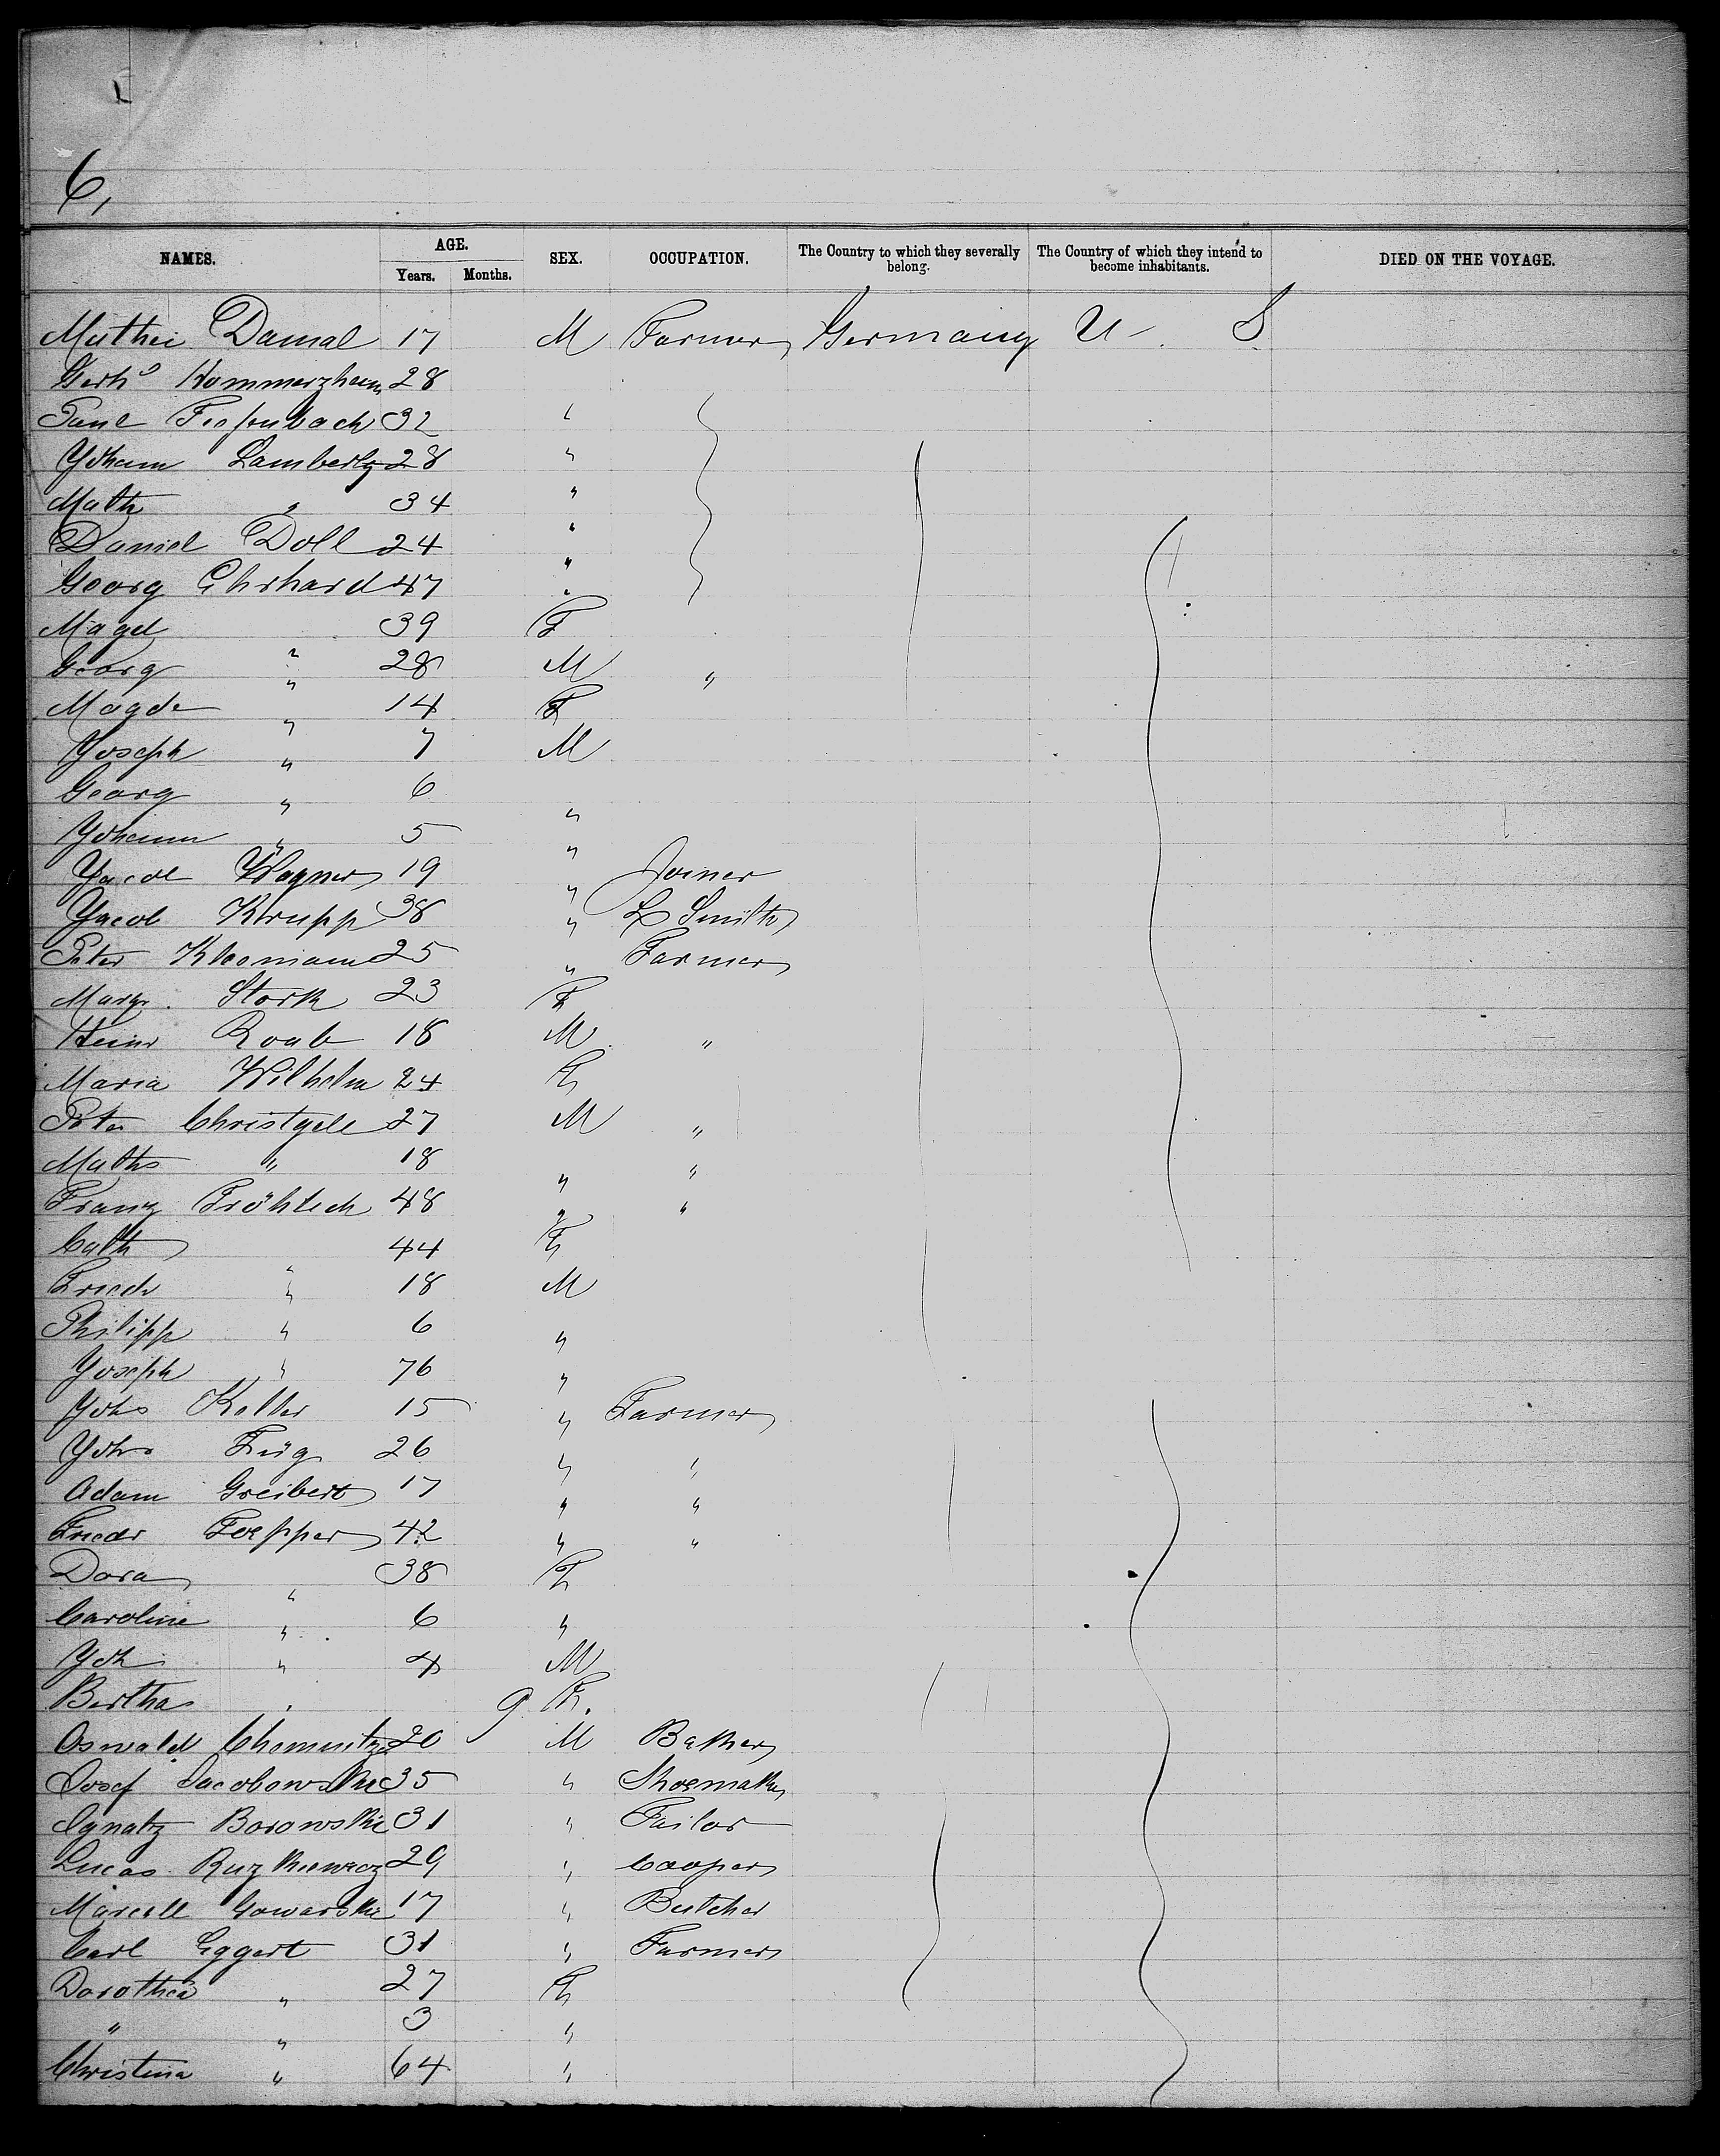 6,
NAMES. AGE. SEX. OCCUPATION. The Country to which they severally belong. The Country of which they intend to become inhabitants. DIED ON THE VOYAGE.
Years. Months.
Damal 17 M Farmer Germany U. S
Gerhd Kommerzheim 28
32 "
Yohann Lambertz 28 "
Math " 34 "
Daniel Doll 24 "
Georg Ehrhard 47 "
Magd 39 F
Georg " 28 M "
Magd " 14 F
Yoseph " 7 M
Georg " 6 "
Yohann " 5 "
Yacob Wagner 19 " Joiner
Yacob Krupp 38 " L Smith
Peter Kleemann 25 " Farmer
Marg. Stork 23 F
Heinr Raab 18 M "
Maria Wilhelm 24 F
Peter Christgell 27 M "
Maths " 18 " "
Franz Fröhlich 48 " "
Cath " 44 F
Friedr " 18 M
Philipp " 6 "
Yoseph " 76 "
Yohs Keller 15 " Farmer
Yohs 26 " "
Adam Greibert 17 " "
Friedr Toepper 42 " "
Dora " 38 F
Caroline " 6 "
Yoh " 4 M
Bertha " 9 F.
Oswald Chemnitzer 20 M Baker
Josef Jacobowski 35 " Shoemaker
Ignatz Borowski 31 " Tailor
Lucas 29 " Cooper
Marcell Gowarski 17 " Butcher
Carl Eggert 31 " Farmer
Dorothea " 27 F
" " 3 "
Christina " 64 "